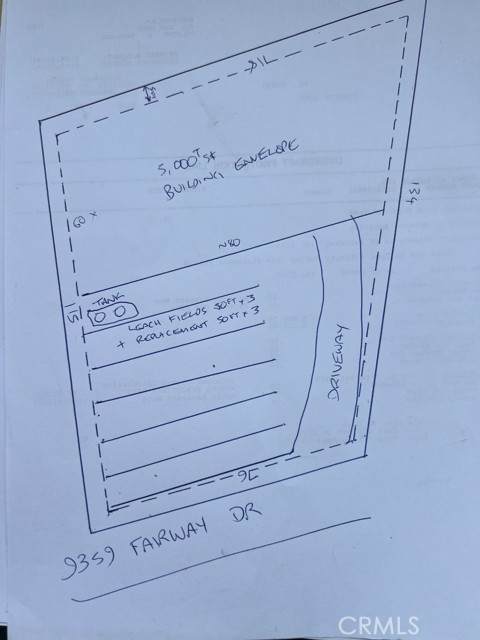 5,000+ sf
BUILDING ENVELOPE
134
60
~80
TANK
LEACH FIELDS 50FT x 3
+ REPLACEMENT 50FT x 3
DRIVEWAY
76
9359 FAIRWAY DR
CRMLS